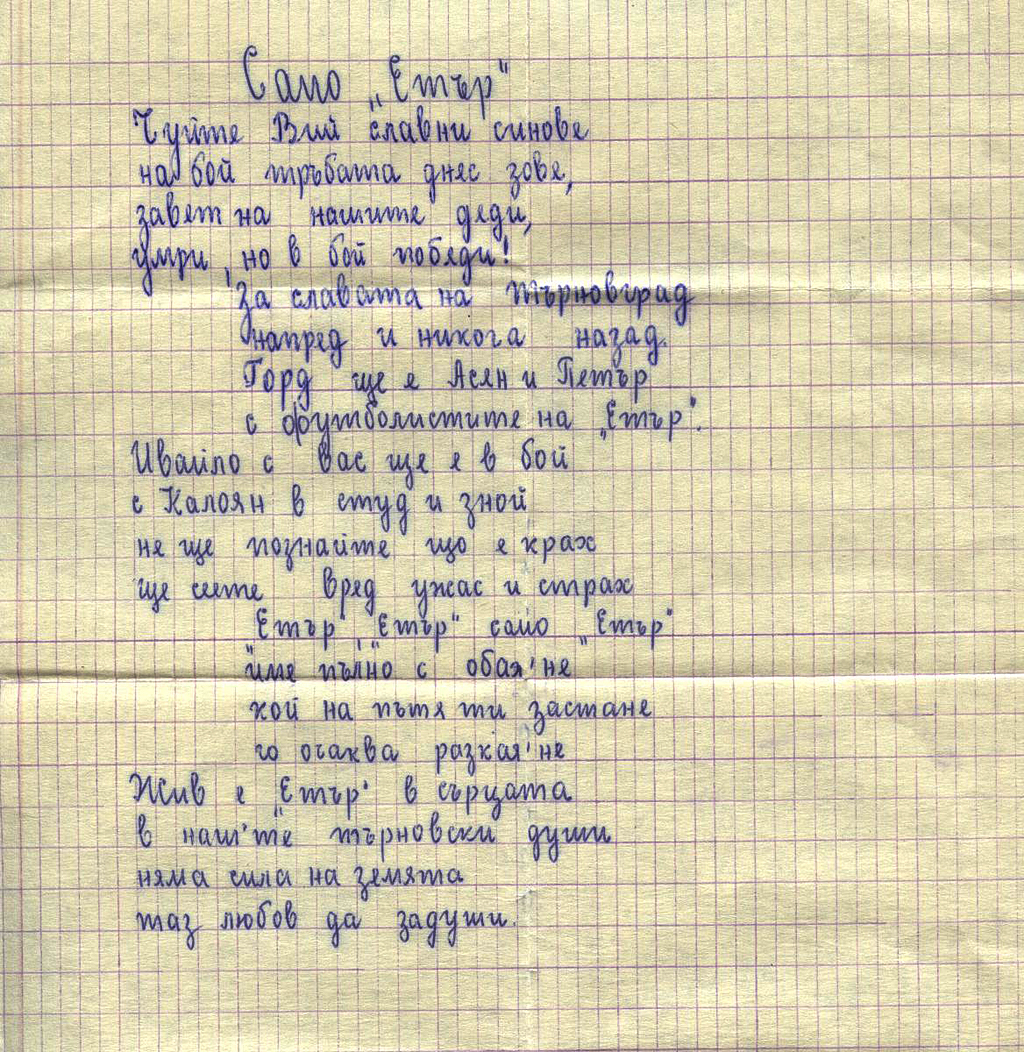 Само „Етър"
Чуйте Вий славни синове
на бой тръбата днес зове,
завет на нашите деди,
умри, но в бой победи!
За славата на Търновград
напред и никога назад.
Горд ще е Асен и Петър
с футболистите на „Етър".
Ивайло с вас ще е в бой
с Калоян в студ и зной
не ще познайте що е крах
ще сеете вред ужас и страх
„Етър", „Етър" само „Етър"
име пълно с обая'не
кой на пътя ти застане
го очаква разкая'не
Жив е „Етър" в сърцата
в наш'те търновски души
няма сила на земята
таз любов да задуши.